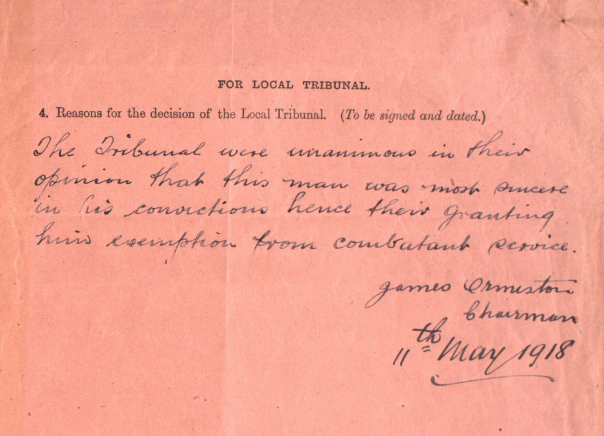 FOR LOCAL TRIBUNAL.
4. Reasons for the decision of the Local Tribunal. (To be signed and dated.)
The Tribunal were unanimous in their
opinion that this man was most sincere
in his convictions hence their granting
him exemption from combatant service.
James Ormiston
Chairman
11th May 1918